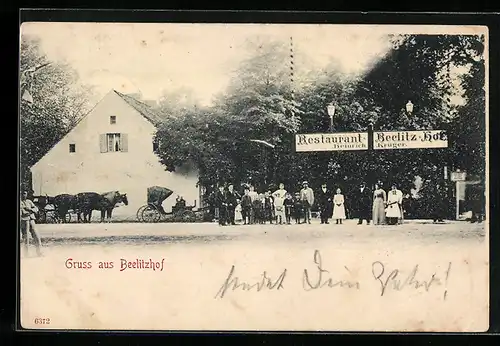 Restaurant Beelitz-Hof
Heinrich Krüger.
Gruss aus Beelitzhof
sendet Dein
6372